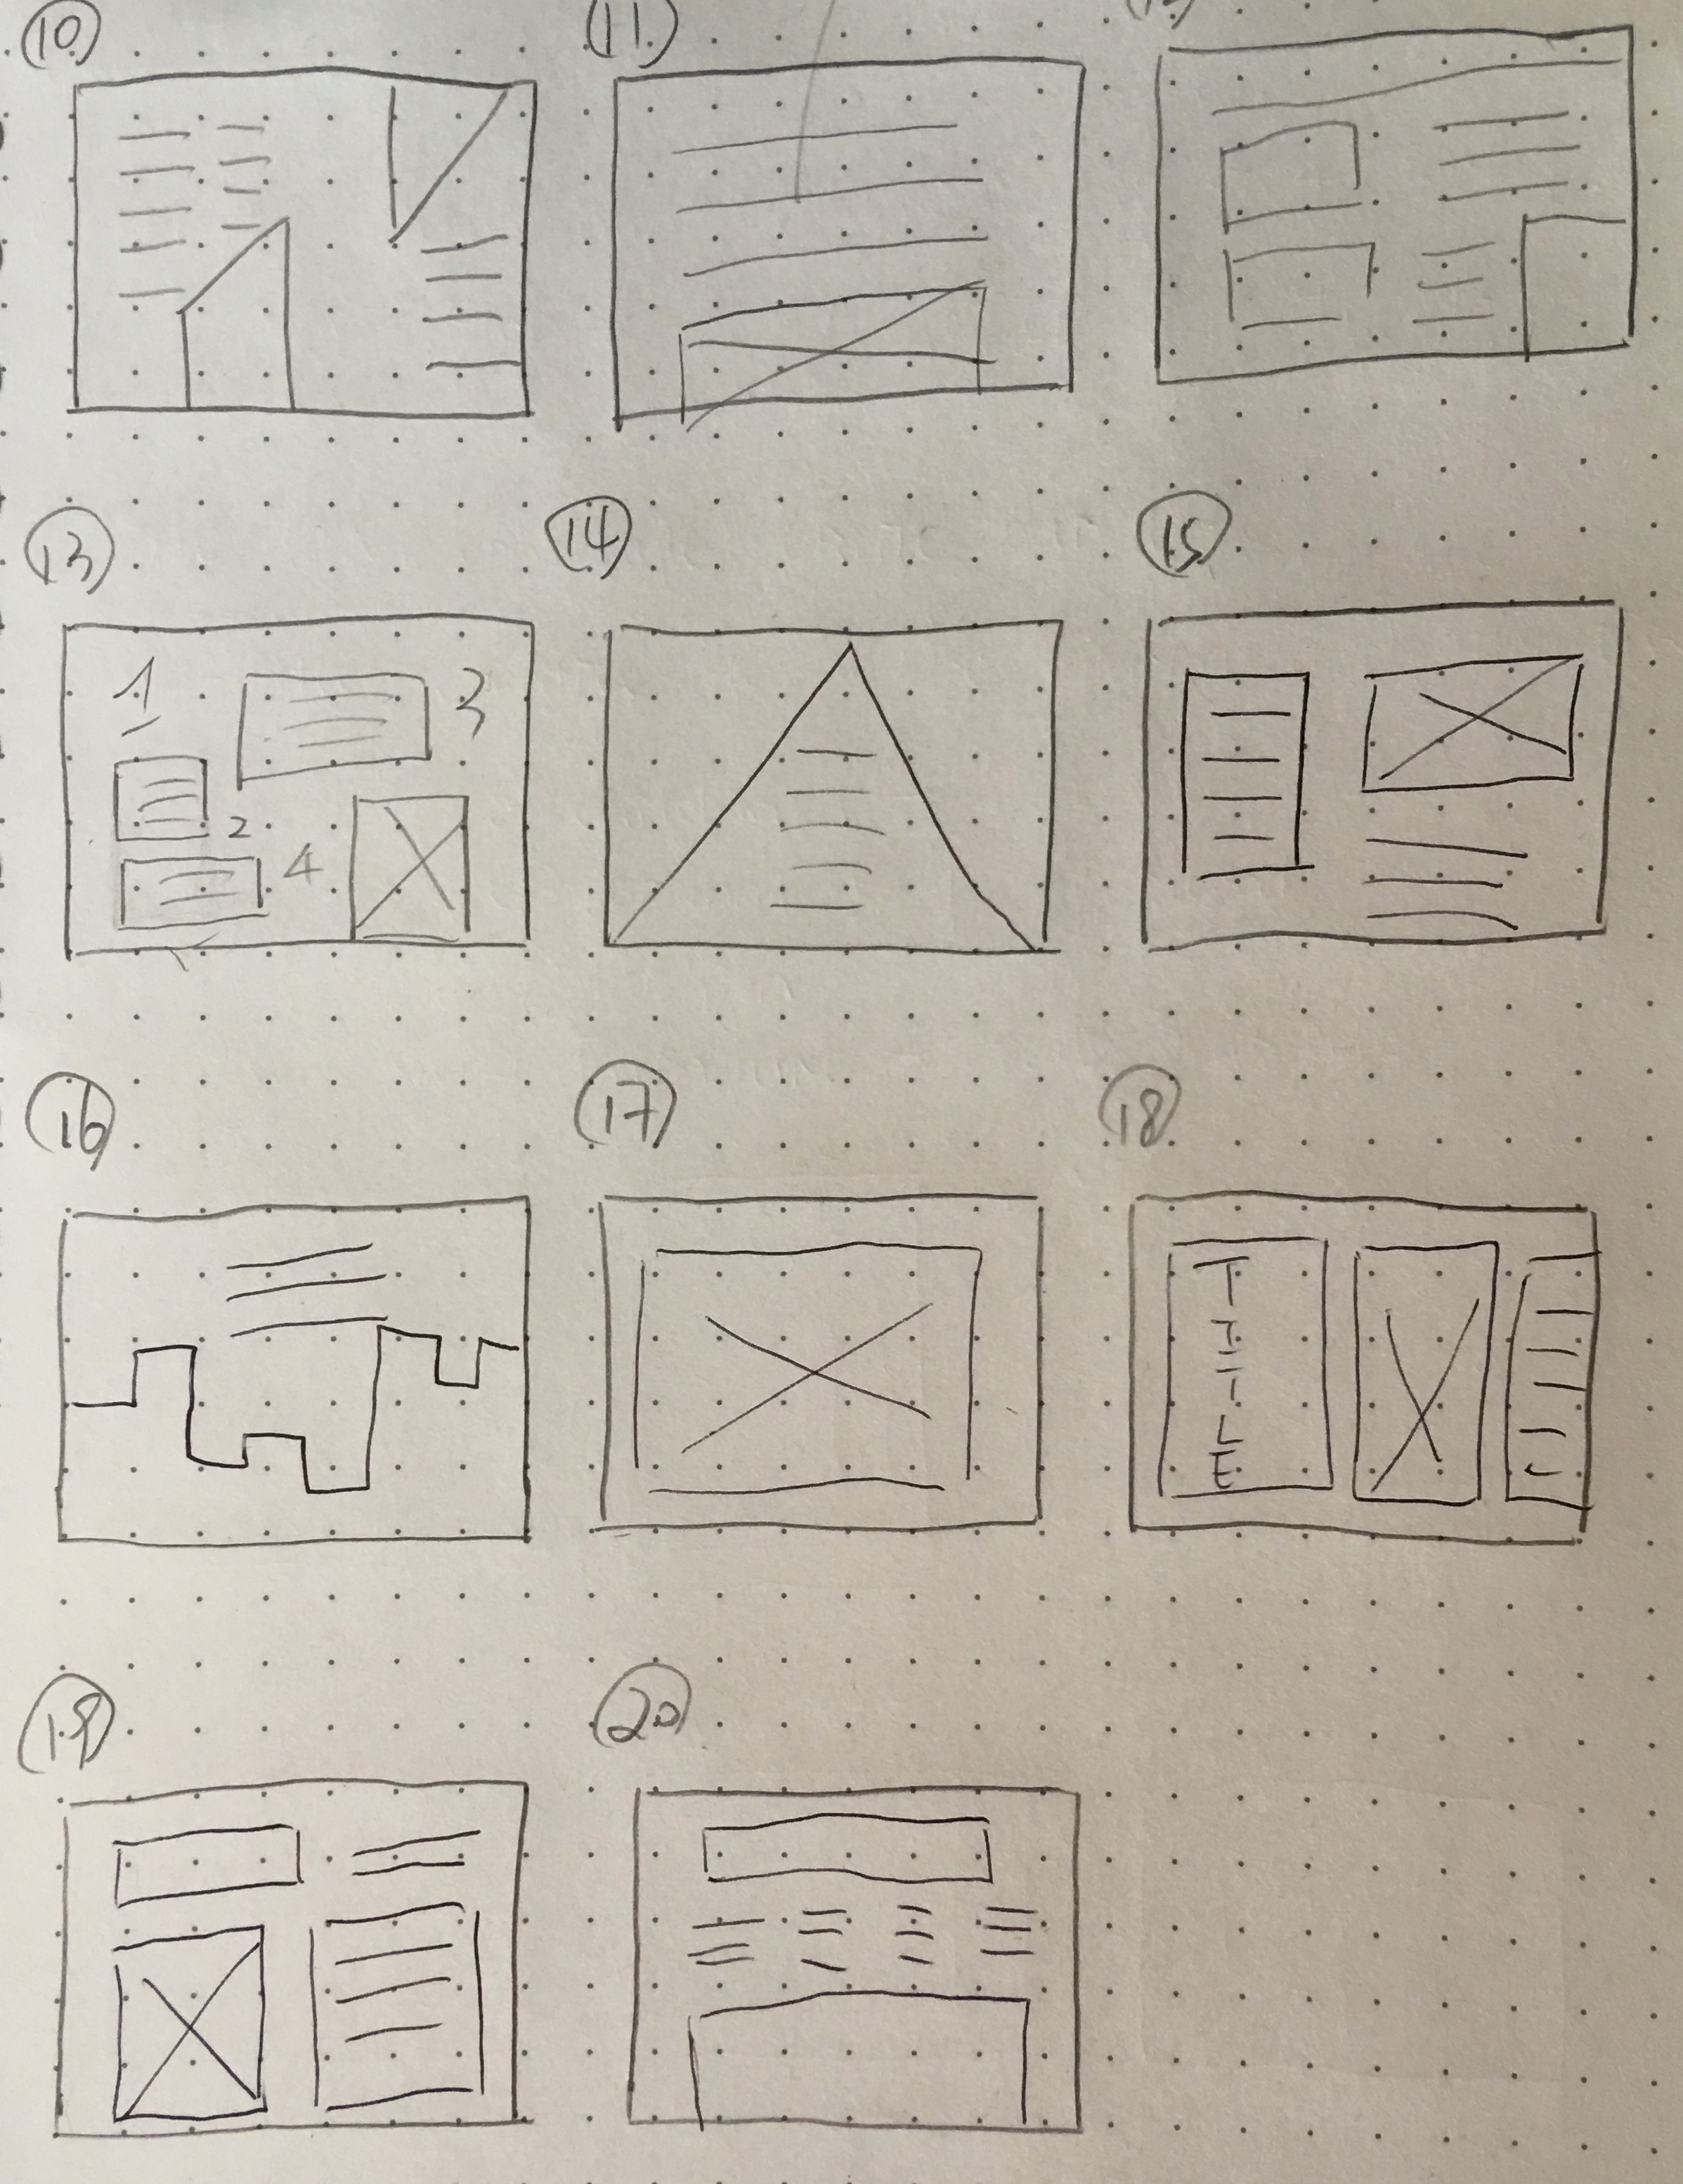 10
11
12
13
1
3
2
4
14
15
16
17
18
T
I
T
L
E
19
20